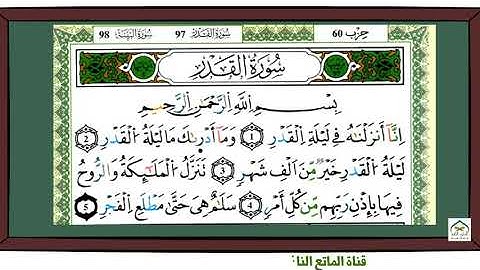 حزب 60 سورة القدر 97 سورة البينة 98
سُورَةُ الْقَدْرِ
بِسْمِ اِللَّهِ اِلرَّحْمَٰنِ اِلرَّحِيمِ
إِنَّا أَنزَلْنَٰهُ فِي لَيْلَةِ اِلْقَدْرِ 1 وَمَا أَدْرٜىٰكَ مَا لَيْلَةُ اُلْقَدْرِ 2
لَيْلَةُ اُلْقَدْرِ خَيْرٌ مِّنْ أَلْفِ شَهْرٍ 3 تَنَزَّلُ اُلْمَلَٰٓئِكَةُ وَالرُّوحُ
فِيهَا بِإِذْنِ رَبِّهِم مِّن كُلِّ أَمْرٍ 4 سَلَٰمٌ هِيَ حَتَّىٰ مَطْلَعِ اِلْفَجْرِ 5
قناة الماتع لنا: